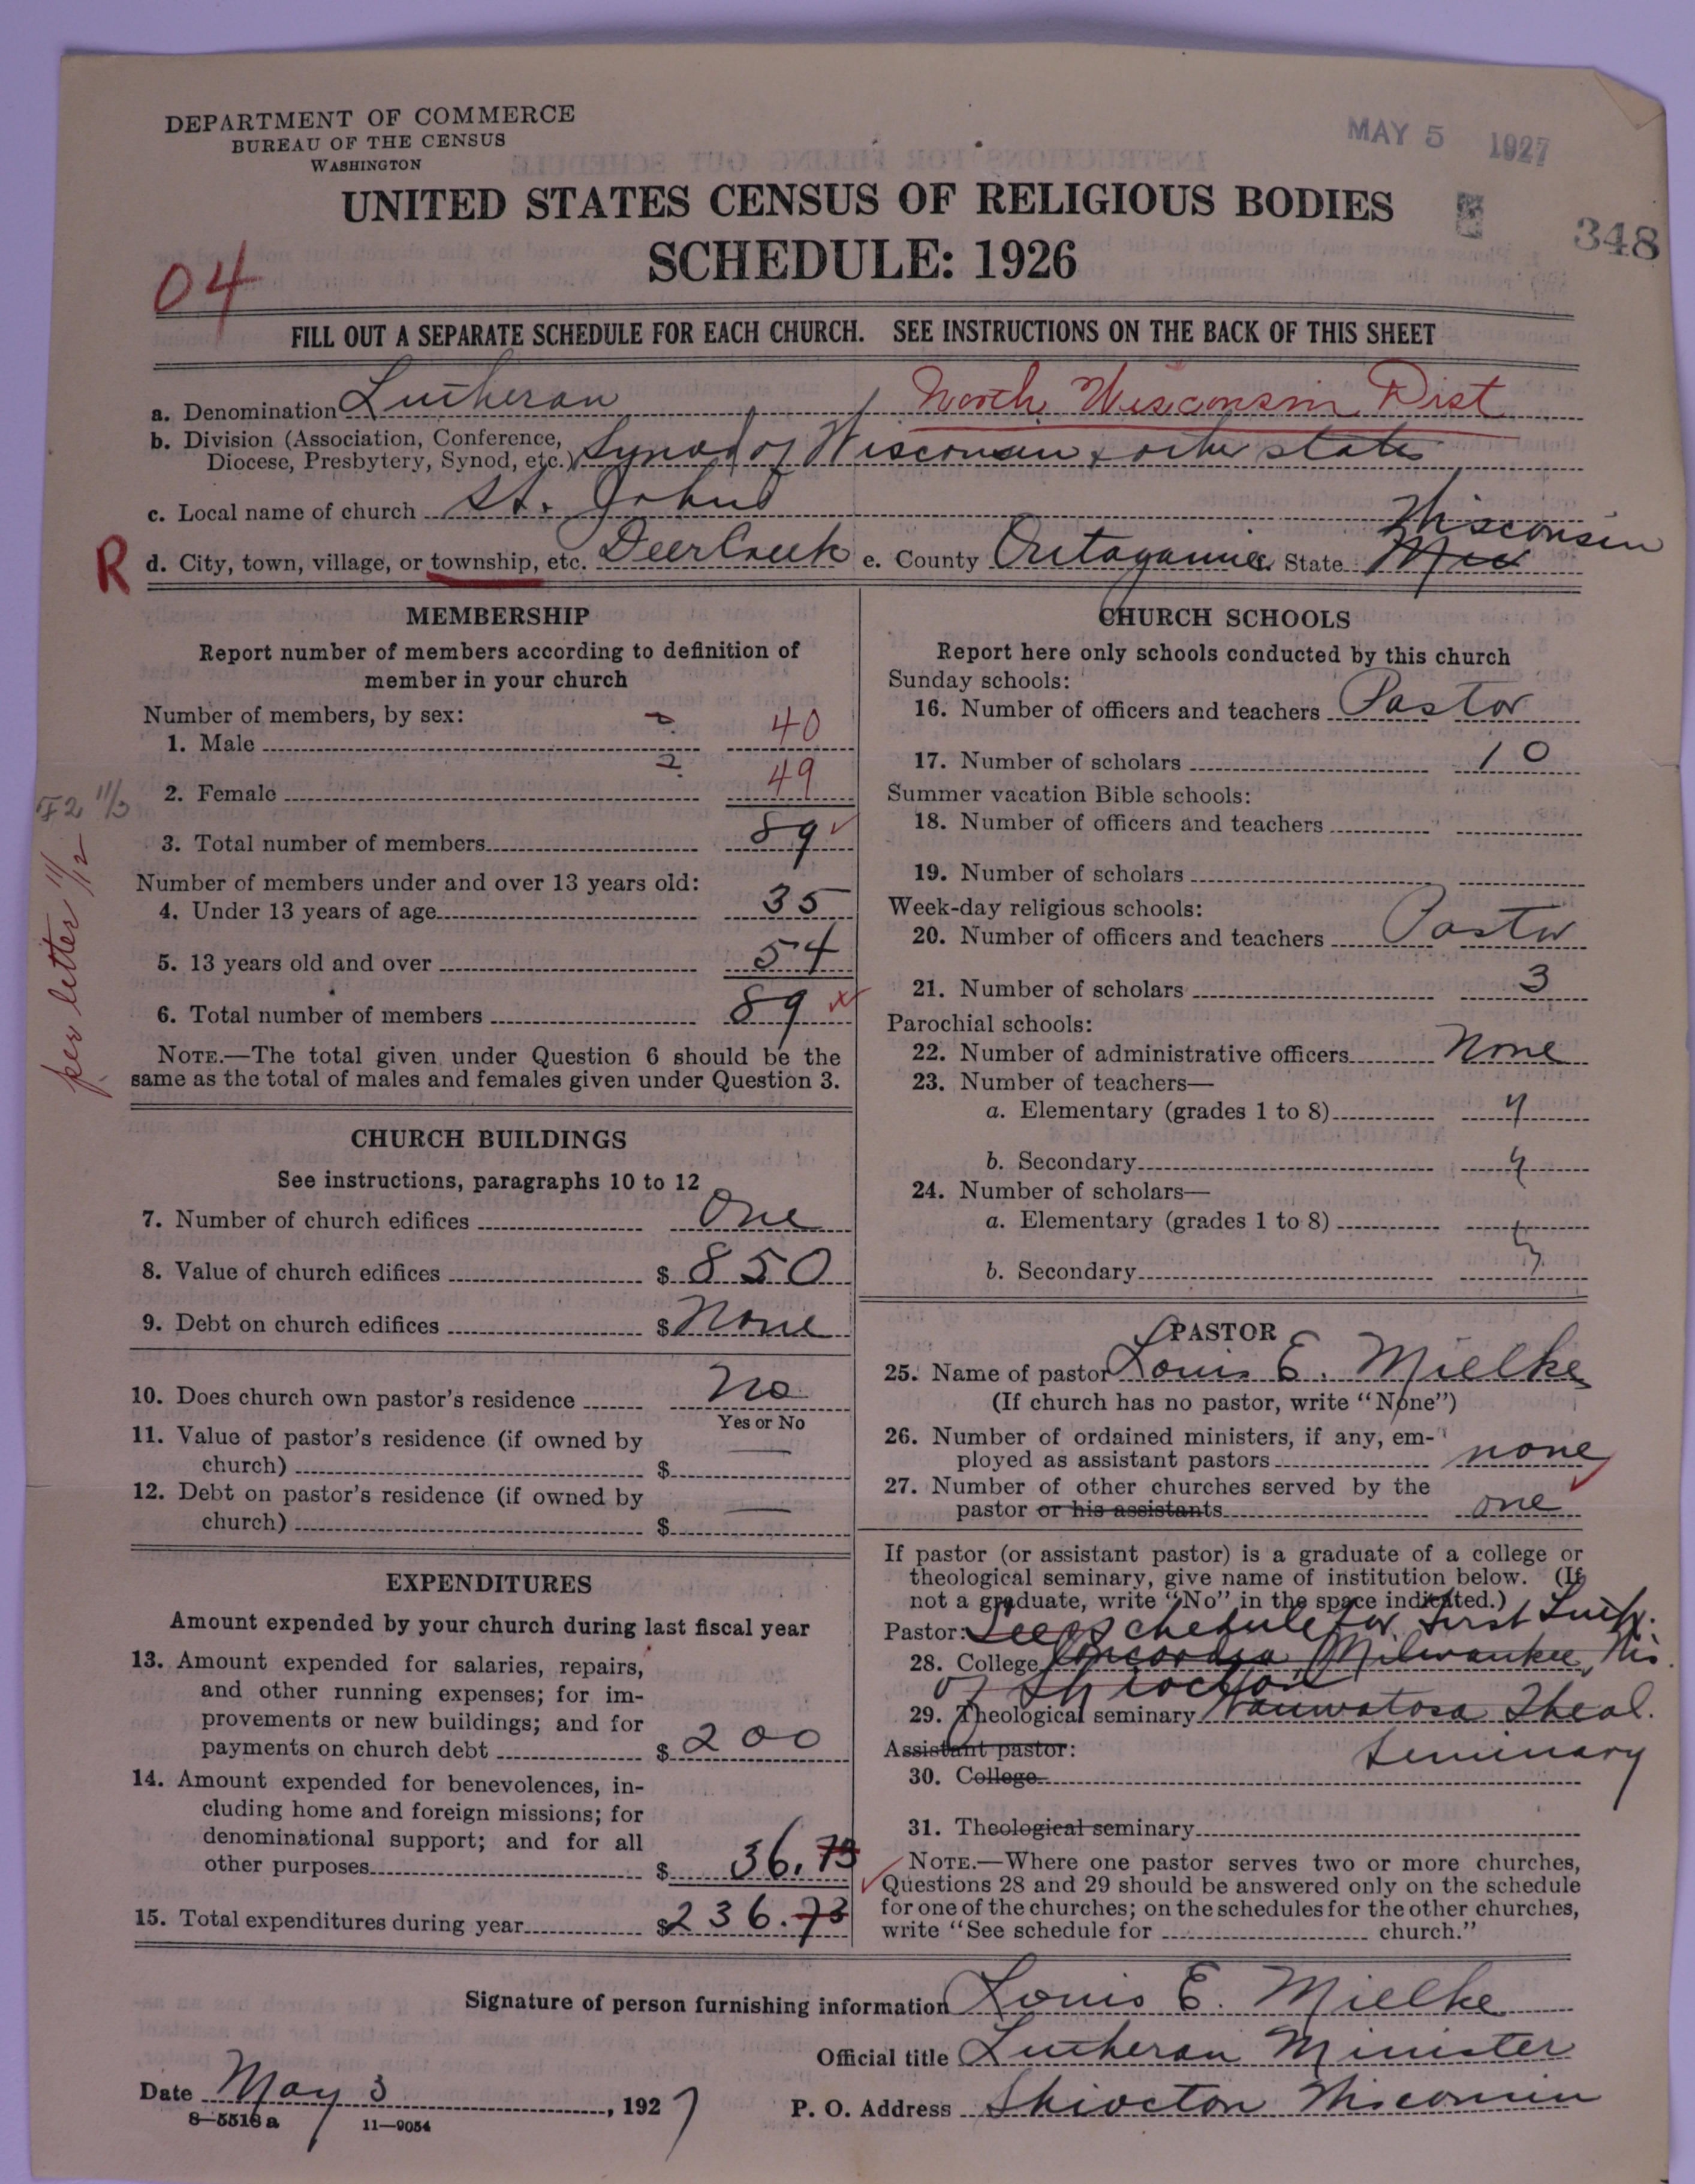 DEPARTMENT OF COMMERCE
BUREAU OF THE CENSUS
WASHINGTON
MAY 5 1927
UNITED STATES CENSUS OF RELIGIOUS BODIES
SCHEDULE: 1926
348
04
FILL OUT A SEPARATE SCHEDULE FOR EACH CHURCH. SEE INSTRUCTIONS ON THE BACK OF THIS SHEET
a. Denomination Lutheran North Wisconsin Dist
b. Division (Association, Conference,
Diocese, Presbytery, Synod, etc.) Synod of Wisconsin & other states
c. Local name of church St. Johns
Wisconsin
R d. City, town, village, or township, etc. Deer Creek e. County Outagamie State
MEMBERSHIP
Report number of members according to definition of
member in your church
Number of members, by sex:
1. Male 40
2. Female 49
3. Total number of members 89
Number of members under and over 13 years old:
4. Under 13 years of age 35
5. 13 years old and over 54
6. Total number of members 89
NOTE.—The total given under Question 6 should be the
same as the total of males and females given under Question 3.
per letter 11/12
CHURCH BUILDINGS
See instructions, paragraphs 10 to 12
7. Number of church edifices One
8. Value of church edifices $ 850
9. Debt on church edifices $ None
10. Does church own pastor's residence No
Yes or No
11. Value of pastor's residence (if owned by
church) $ —
12. Debt on pastor's residence (if owned by
church) $ —
EXPENDITURES
Amount expended by your church during last fiscal year
13. Amount expended for salaries, repairs,
and other running expenses; for im-
provements or new buildings; and for
payments on church debt $ 200
14. Amount expended for benevolences, in-
cluding home and foreign missions; for
denominational support; and for all
other purposes $ 36.73
15. Total expenditures during year $ 236.73
CHURCH SCHOOLS
Report here only schools conducted by this church
Sunday schools:
16. Number of officers and teachers Pastor
17. Number of scholars 10
Summer vacation Bible schools:
18. Number of officers and teachers
19. Number of scholars
Week-day religious schools:
20. Number of officers and teachers Pastor
21. Number of scholars 3
Parochial schools:
22. Number of administrative officers None
23. Number of teachers—
a. Elementary (grades 1 to 8)
b. Secondary
24. Number of scholars—
a. Elementary (grades 1 to 8)
b. Secondary
PASTOR
25. Name of pastor Louis E. Mielke
(If church has no pastor, write "None")
26. Number of ordained ministers, if any, em-
ployed as assistant pastors none
27. Number of other churches served by the
pastor or his assistants one
If pastor (or assistant pastor) is a graduate of a college or
theological seminary, give name of institution below. (If
not a graduate, write "No" in the space indicated.)
Pastor: See schedule for First Luth.
28. College Concordia Milwaukee, Wis
of Shiocton
29. Theological seminary Wauwatosa Theol.
Seminary
Assistant pastor:
30. College
31. Theological seminary
NOTE.—Where one pastor serves two or more churches,
Questions 28 and 29 should be answered only on the schedule
for one of the churches; on the schedules for the other churches,
write "See schedule for church."
Signature of person furnishing information Louis E. Mielke
Official title Lutheran Minister
Date May 3, 1927
P. O. Address Shiocton Wisconsin
8—5518 a 11—9054